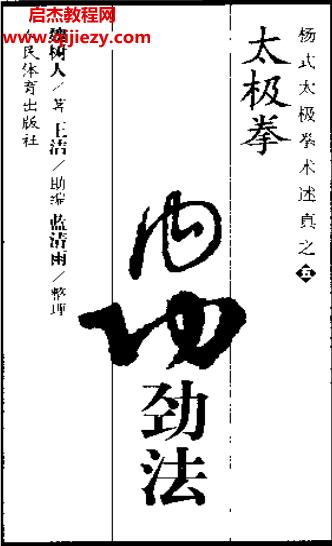 启杰教程网
www.qijiezy.com
杨式太极拳术述真之五
太极拳
内功
劲法
魏树人/著 王洁/助编 蓝清雨/整理
民体育出版社